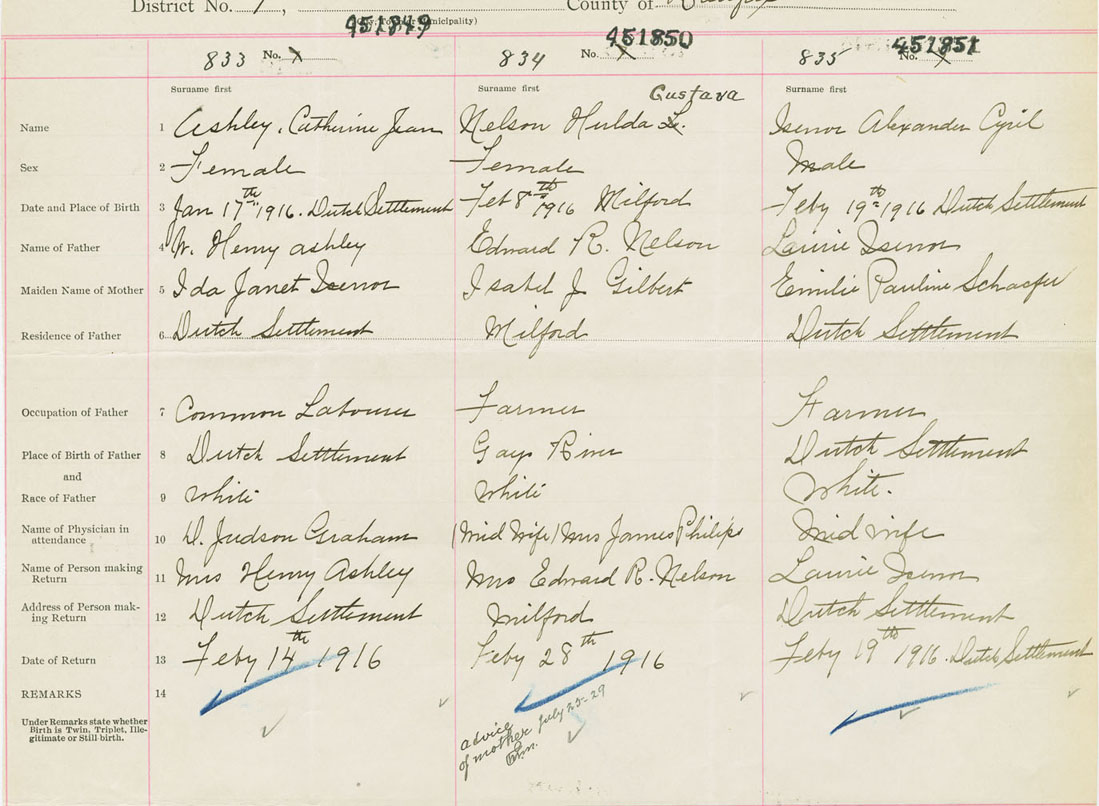 District No. 7, County of Halifax
(City, Town or Municipality)
451849 451850 451851
833 No. 834 No. 835 No.
Surname first Surname first Gustava Surname first
Name 1 Ashley, Catherine Jean Nelson Hulda Isenor Alexander Cyril
Sex 2 Female Female Male
Date and Place of Birth 3 Jan 17th 1916. Dutch Settlement Feb 8th 1916 Milford Feby 19th 1916 Dutch Settlement
Name of Father 4 W. Henry Ashley Edward R. Nelson Laurie Isenor
Maiden Name of Mother 5 Ida Janet Isenor Isabel J Gilbert Emilie Pauline Schaefer
Residence of Father 6 Dutch Settlement Milford Dutch Settlement
Occupation of Father 7 Common Labourer Farmer Farmer
Place of Birth of Father 8 Dutch Settlement Gays River Dutch Settlement
and
Race of Father 9 White White White.
Name of Physician in
attendance 10 D. Judson Graham (Mid Wife) Mrs James Philips Mid wife
Name of Person making
Return 11 Mrs Henry Ashley Mrs Edward R. Nelson Laurie Isenor
Address of Person mak-
ing Return 12 Dutch Settlement Milford Dutch Settlement
Date of Return 13 Feby 14th 1916 Feby 28th 1916 Feby 19th 1916. Dutch Settlement
REMARKS 14
Under Remarks state whether
Birth is Twin, Triplet, Ille-
gitimate or Still-birth.
advice
of mother July 25-29